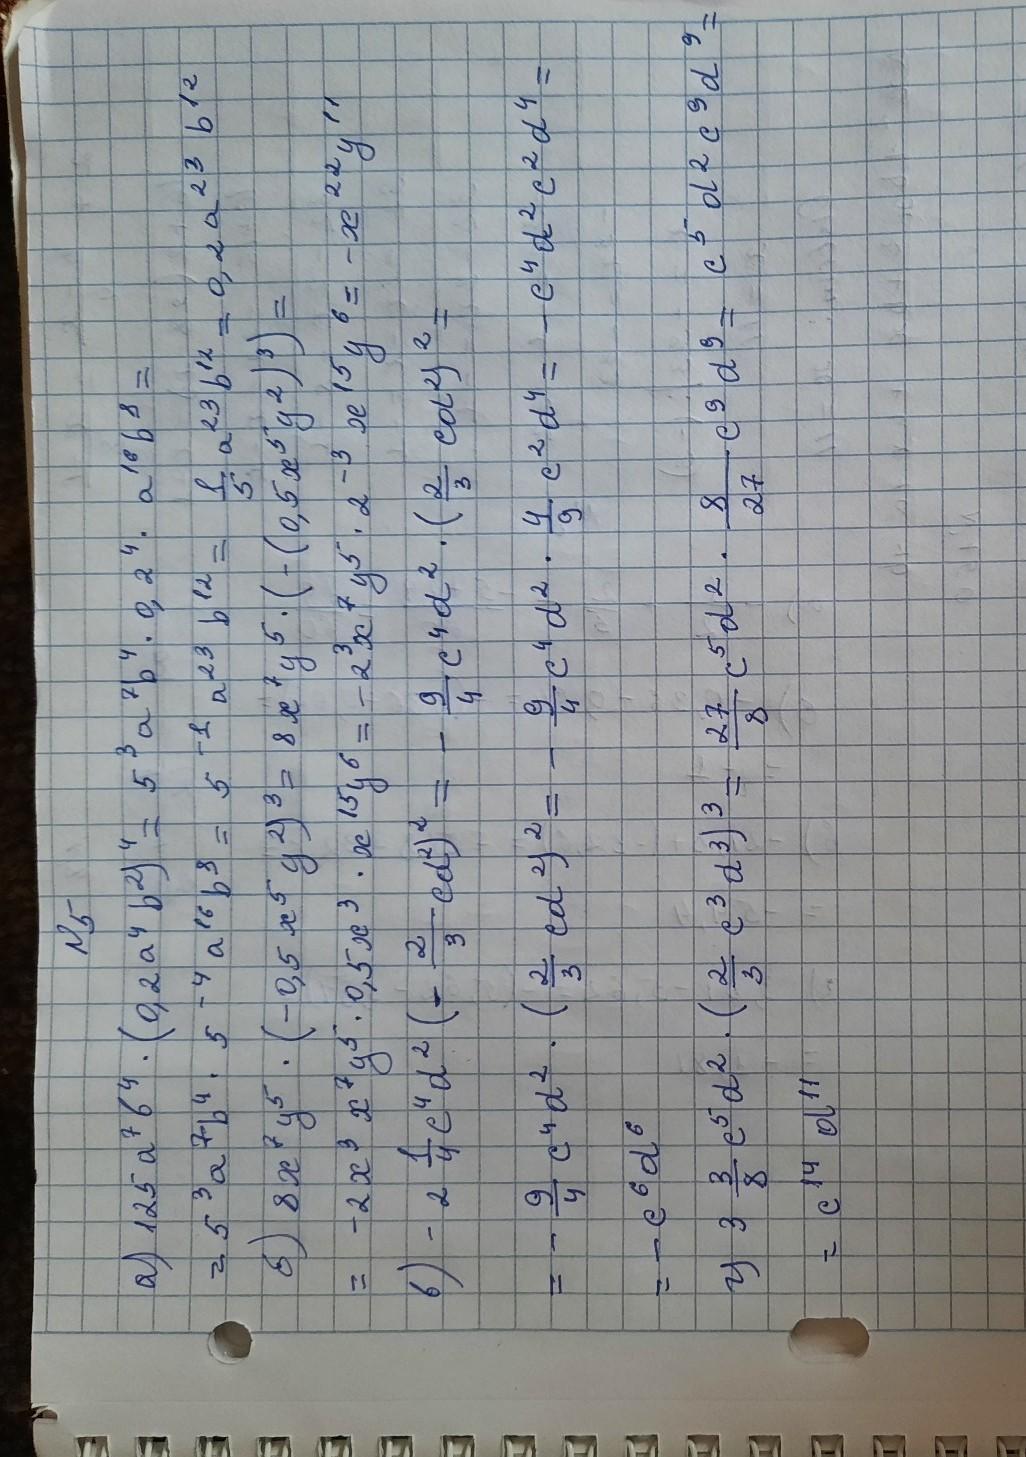 N5
а) 125a⁷b⁴ · (0,2a⁴b²)⁴ = 5³a⁷b⁴ · 0,2⁴ · a¹⁶b⁸ =
= 5³a⁷b⁴ · 5⁻⁴a¹⁶b⁸ = 5⁻¹a²³b¹² = 1/5 a²³b¹² = 0,2a²³b¹²
б) 8x⁷y⁵ · (-0,5x⁵y²)³ = 8x⁷y⁵ · (-(0,5x⁵y²)³) =
= -2x³ x⁷y⁵ · 0,5x³ · x¹⁵y⁶ = -2³x⁷y⁵ · 2⁻³ x¹⁵y⁶ = -x²²y¹¹
в) -2 1/4 c⁴d² (-2/3 cd²)² = -9/4 c⁴d² · (2/3 cd²)² =
= -9/4 c⁴d² · (2/3 cd²)² = -9/4 c⁴d² · 4/9 c²d⁴ = -c⁴d²c²d⁴ =
= -c⁶d⁶
г) 3 3/8 c⁵d² · (2/3 c³d³)³ = 27/8 c⁵d² · 8/27 c⁹d⁹ = c⁵d²c⁹d⁹ =
= c¹⁴d¹¹